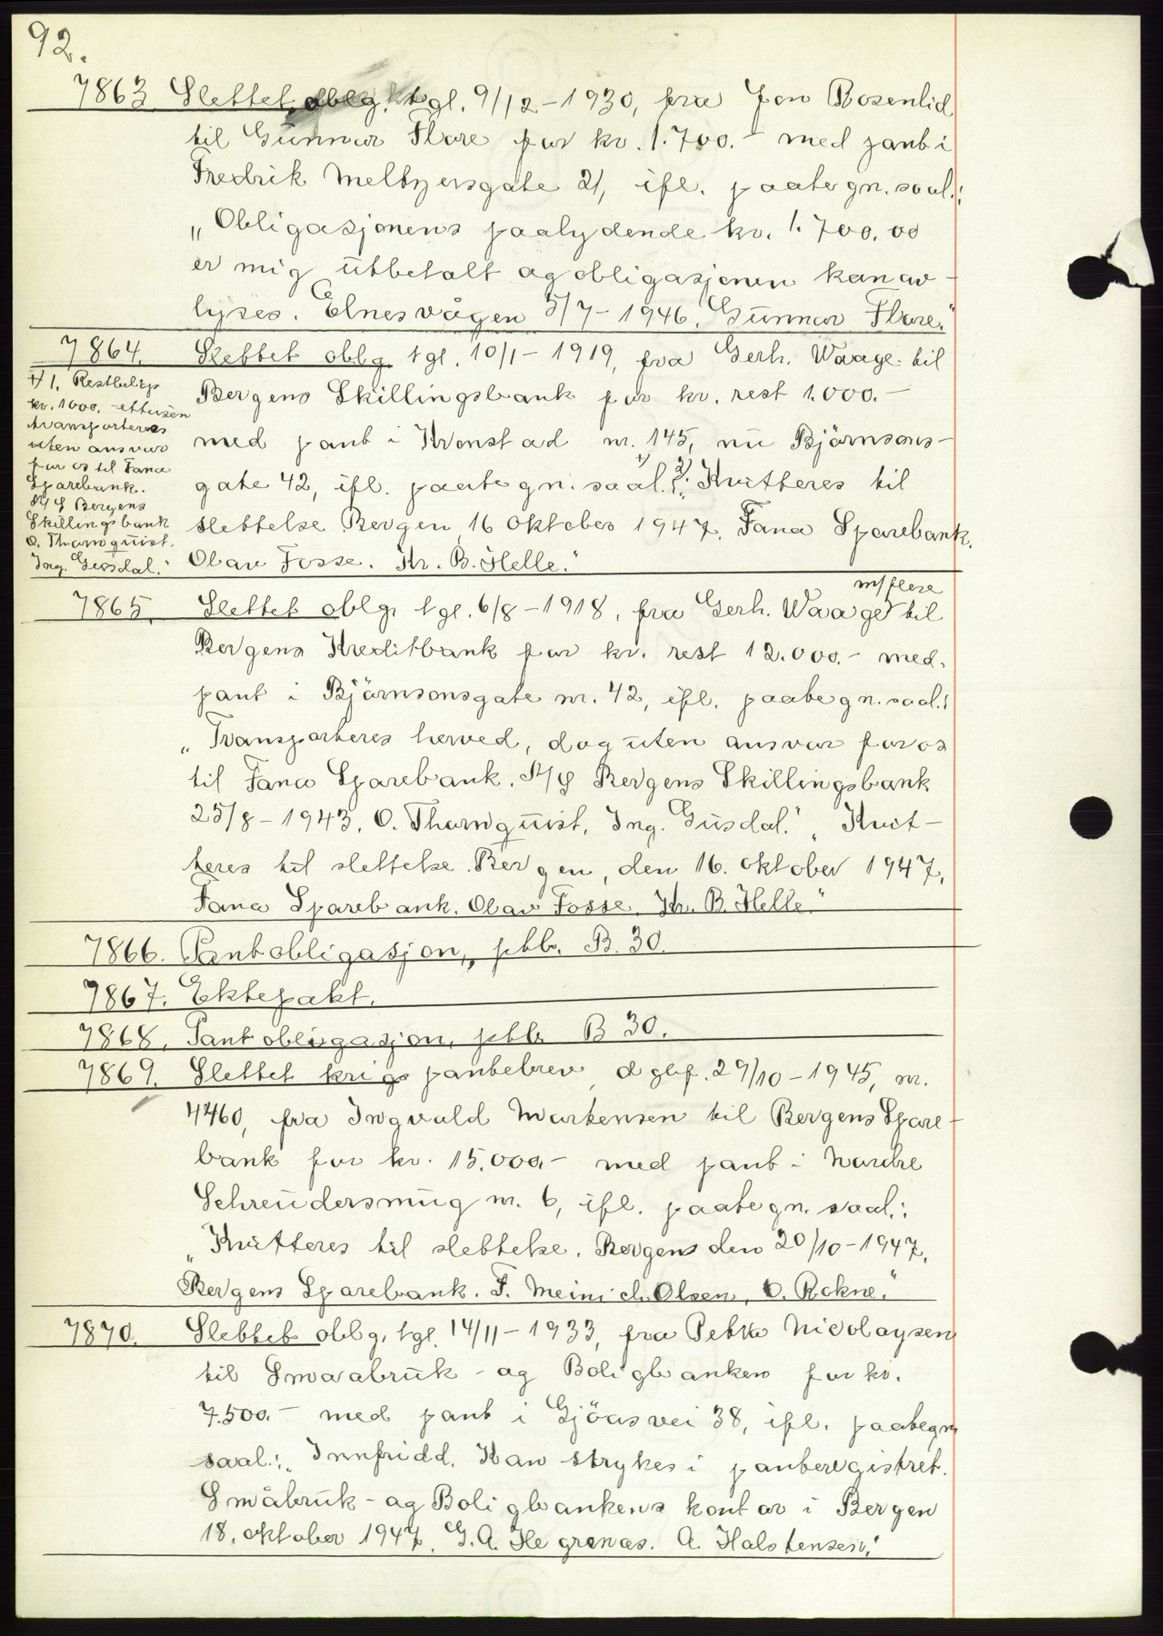 92.
7863 Slettet oblg. tgl. 9/12-1930, fra Jon Rosenlid
til Gunnar Flore for kr. 1.700.- med pant i
Fredrik Meltzersgate 21, ifl. paategn. saal.:
„Obligasjonens paalydende kr. 1.700.00
er mig utbetalt og obligasjonen kan av-
lyses. Elnesvågen 5/7-1946. Gunnar Flore."
7864. Slettet oblg. tgl. 10/1-1919, fra Gerh. Waage til
Bergens Skillingsbank for kr. rest 1.000.-
med pant i Kronstad nr. 145, nu Björnsons-
gate 42, ifl. paategn. saal.: Kvitteres til
slettelse Bergen 16 oktober 1947. Fana Sparebank.
Olav Fosse. Kr. B. Helle."
+) 1. Restbeløp
kr. 1000.- ettusen
transporteres
uten ansvar
for os til Fana
Sparebank.
A/S Bergens
Skillingsbank
O. Thornquist.
Ing. Gusdal."
7865. Slettet oblg. tgl. 6/8-1918, fra Gerh. Waage m/flere til
Bergens Kreditbank for kr. rest 12.000.- med
pant i Björnsonsgate nr. 42, ifl. paategn. saal.:
„Transporteres herved, dog uten ansvar for os
til Fana Sparebank. A/S Bergens Skillingsbank
25/8-1943. O. Thornquist. Ing. Gusdal." „Kvit-
teres til slettelse. Bergen, den 16. oktober 1947.
Fana Sparebank. Olav Fosse. Kr. B. Helle."
7866. Pantobligasjon, pbb. B. 30.
7867. Ektepakt.
7868. Pantobligasjon, pbb. B 30.
7869. Slettet krigspantebrev dgbf. 29/10-1945, nr.
4460, fra Ingvald Martensen til Bergens Spare-
bank for kr. 15.000.- med pant i Nordre
Schreudersmug nr. 6, ifl. paategn. saal.:
„Kvitteres til slettelse. Bergens den 20/10-1947.
Bergens Sparebank. F. Meinich Olsen, O. Rokne."
7870. Slettet oblg. tgl. 14/11-1933, fra Petra Nicolaysen
til Smaabruk- og Boligbanken for kr.
7.500.- med pant i Gjöasvei 38, ifl. paategn
saal.: „Innfridd. Kan strykes i panteregistret.
Småbruk- og Boligbankens kontor i Bergen
18. oktober 1947. G.A. Hegrenæs. A. Halstensen."